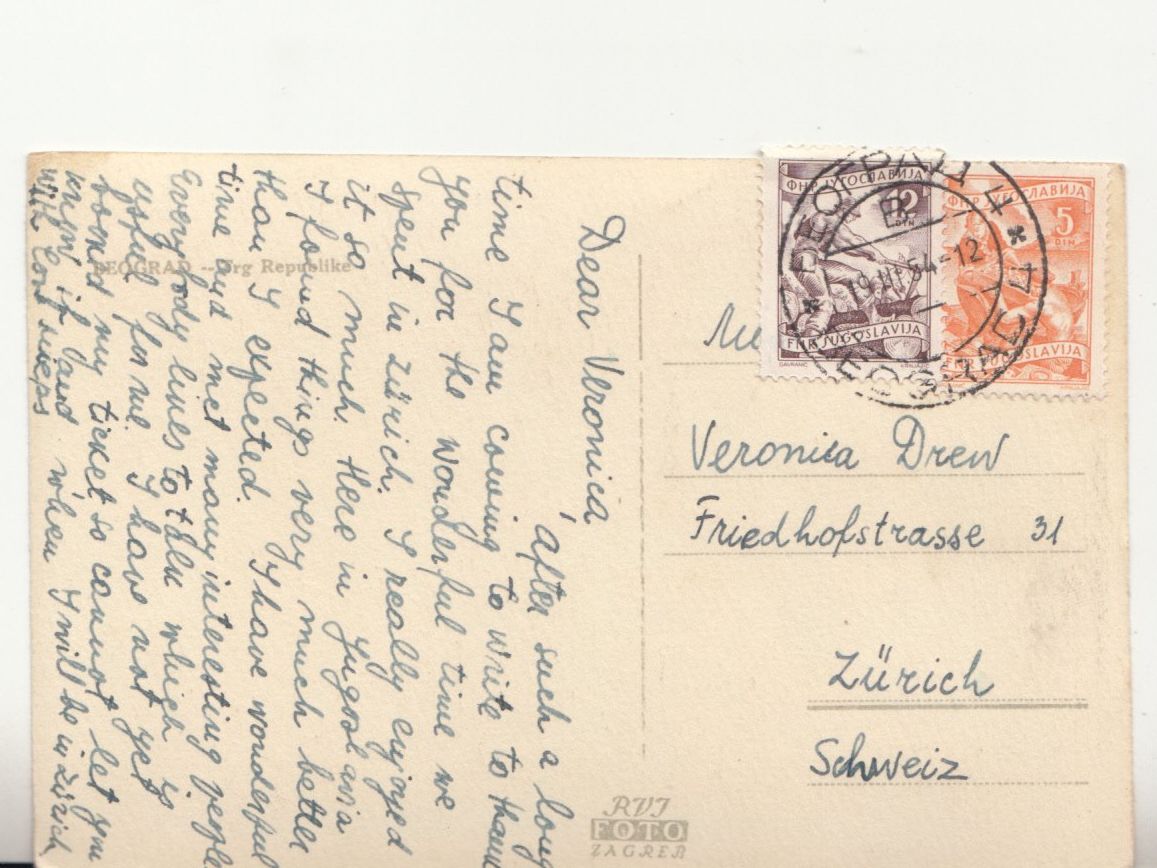 Dear Veronica,
After such a long
time I am coming to write to thank
you for the wonderful time we
spent in Zürich. I really enjoyed
it so much. Here in Yugoslavia
I found things very much better
than I expected. I have wonderful
time and met many interesting people
Everybody lines to talk which is
useful for me. I have not yet
booked my ticket so cannot let you
know if and when I will be in Zürich
BEOGRAD -- Trg Republike
ФНР ЈУГОСЛАВИЈА
12
DIN
FNR JUGOSLAVIJA
ФНР ЈУГОСЛАВИЈА
5
DIN
FNR JUGOSLAVIJA
БЕОГРАД 4
54-12
BEOGRAD 4
Veronica Drew
Friedhofstrasse 31
Zürich
Schweiz
RVI
FOTO
ZAGREB